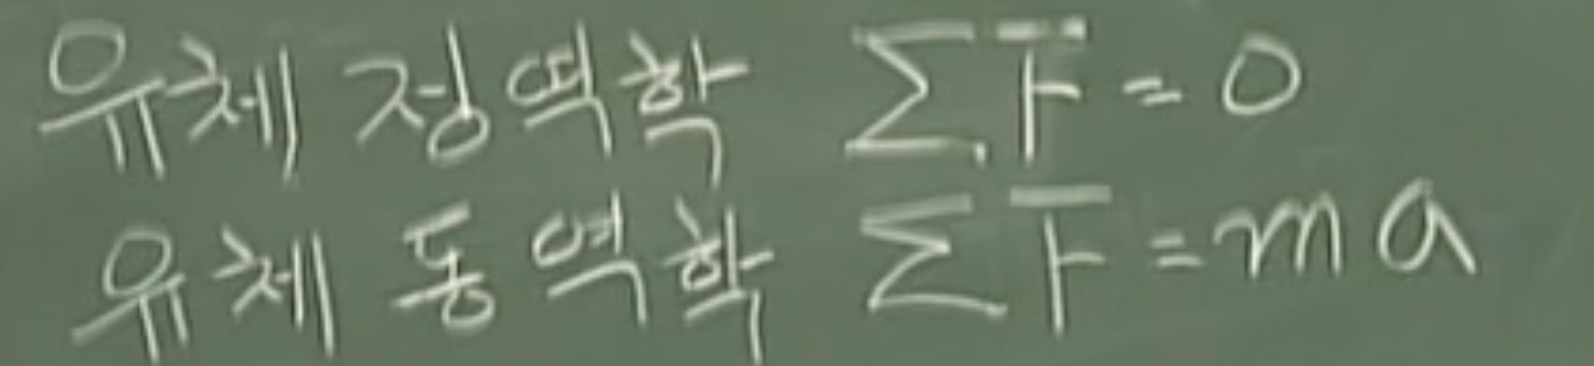 유체 정역학 ΣF = 0
유체 동역학 ΣF = ma